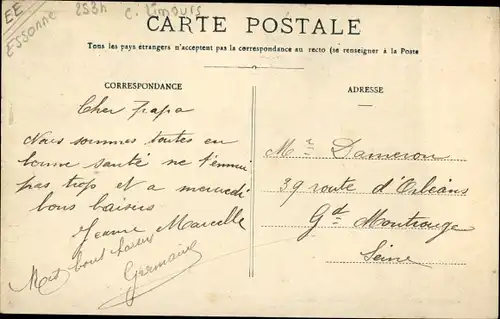 EE
Essonne
253h
C. Limours
CARTE POSTALE
Tous les pays étrangers n'acceptent pas la correspondance au recto (se renseigner à la Poste
CORRESPONDANCE
ADRESSE
Cher papa
Nous sommes toutes en
bonne santé ne t'ennui
pas trop et a mercredi
bons baisers
Jeanne Marcelle
bons baisers
Germaine
Mr Dameron
39 route d'Orléans
Gd Montrouge
Seine